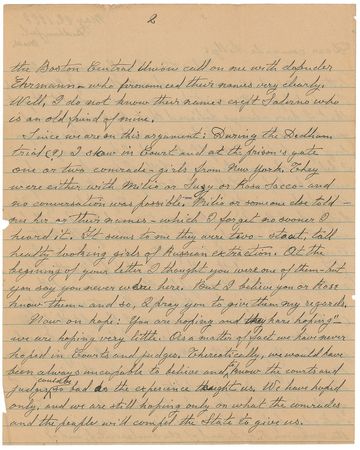 2
the Boston Central Union call on me with defender
Ehrmann - who pronounced their names very clearly.
Well, I do not know their names exept Salerno who
is an old friend of mine.
Since we are on this argument: During the Dedham
trial (?) I saw in Court and at the prison's gate
one or two comrade-girls from New York. They
were either with Milio or Suzy or Rosa Sacco - and
no conversation was possible. Milio or someone else told
me her or their names - which I forget no sooner I
heard it. It seems to me they were two - stout, tall
healty looking girls of Russian extraction. At the
begining of your letter I thought you were one of them - but
you say you never were here. But I believe you or Rose
know them - and so, I pray you to give them my regards.
Now on hope: You are hoping and "they are hoping" -
we are hoping very little. As a matter of fact we have never
hoped in Courts and judges. Theoretically, we would have
been always uncapable to believe and to know the courts and
judges so bad as the experience taught us. We have hoped
only, and we are still hoping only on what the comrades
and the people will compel the State to give us.